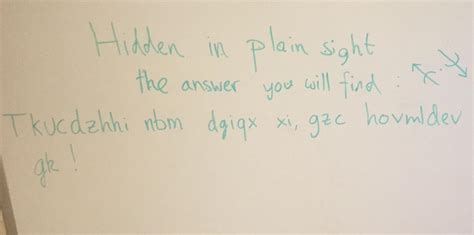 Hidden in plain sight
the answer you will find :
Tkucdzhhi nbm dgiqx xi, gzc hovmldev
gk !